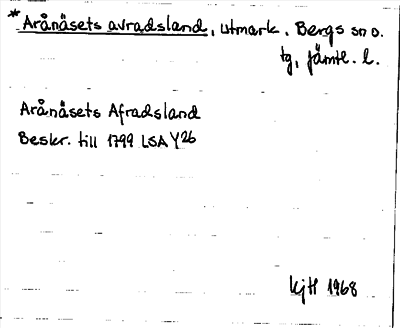 *Arånäsets avradsland, utmark. Bergs sn o.
tg, Jämtl. l.
Arånäsets Afradsland
Beskr. till 1799 LSA Y26
KjH 1968